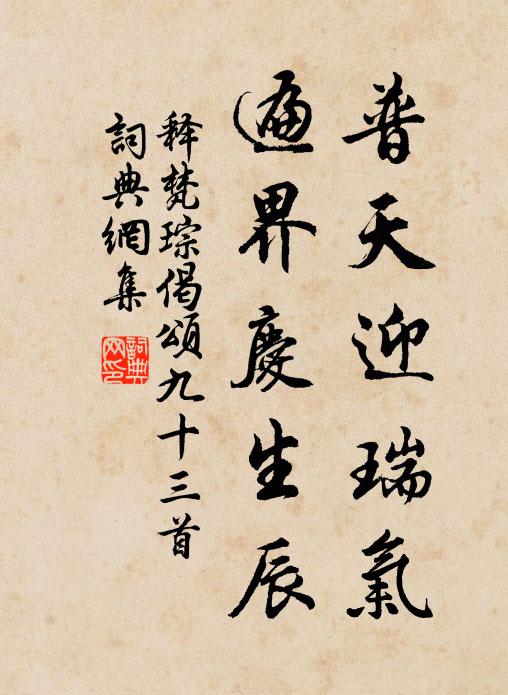 普天迎瑞氣
遍界慶生辰
释梵琮偈頌九十三首
詞典網集
詞典网印